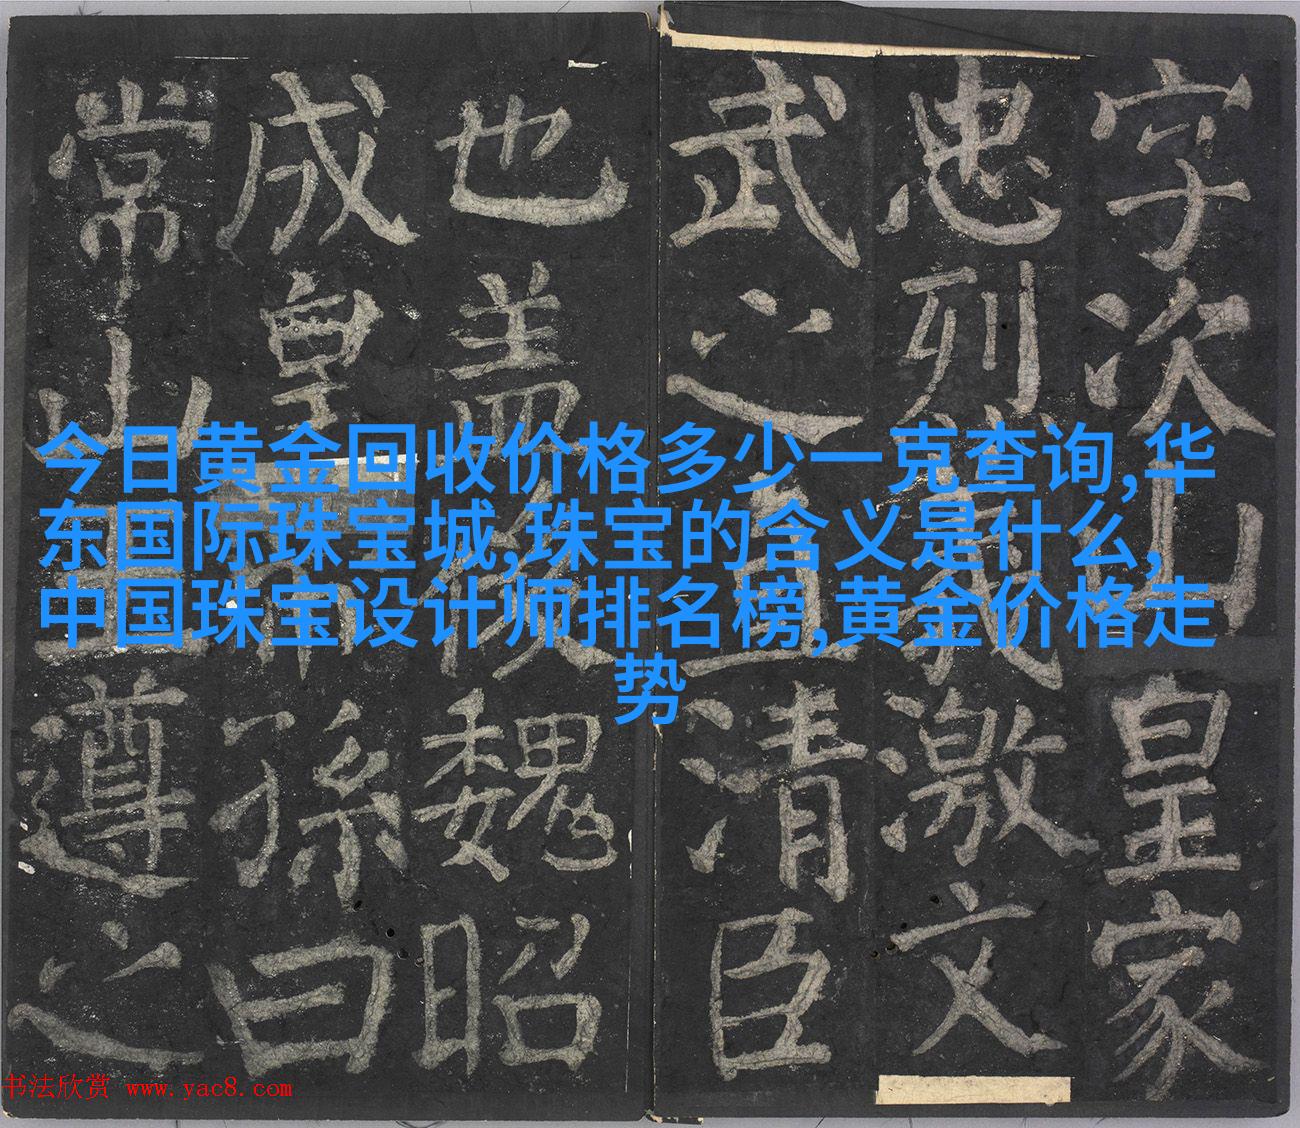 字次山皇家
忠烈義激文
武之直清臣
也盖後魏昭
成皇帝孫曰
常山王遵之
今日黄金回收价格多少一克查询,华
东国际珠宝城,珠宝的含义是什么,
中国珠宝设计师排名榜,黄金价格走
势
书法欣赏 www.yac8.com